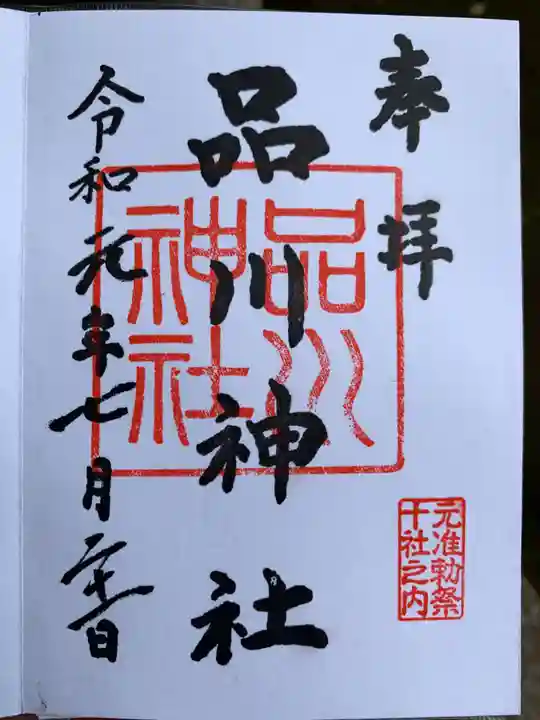 奉拝
品川神社
品川
神社
元准勅祭
十社之内
令和元年七月二十一日